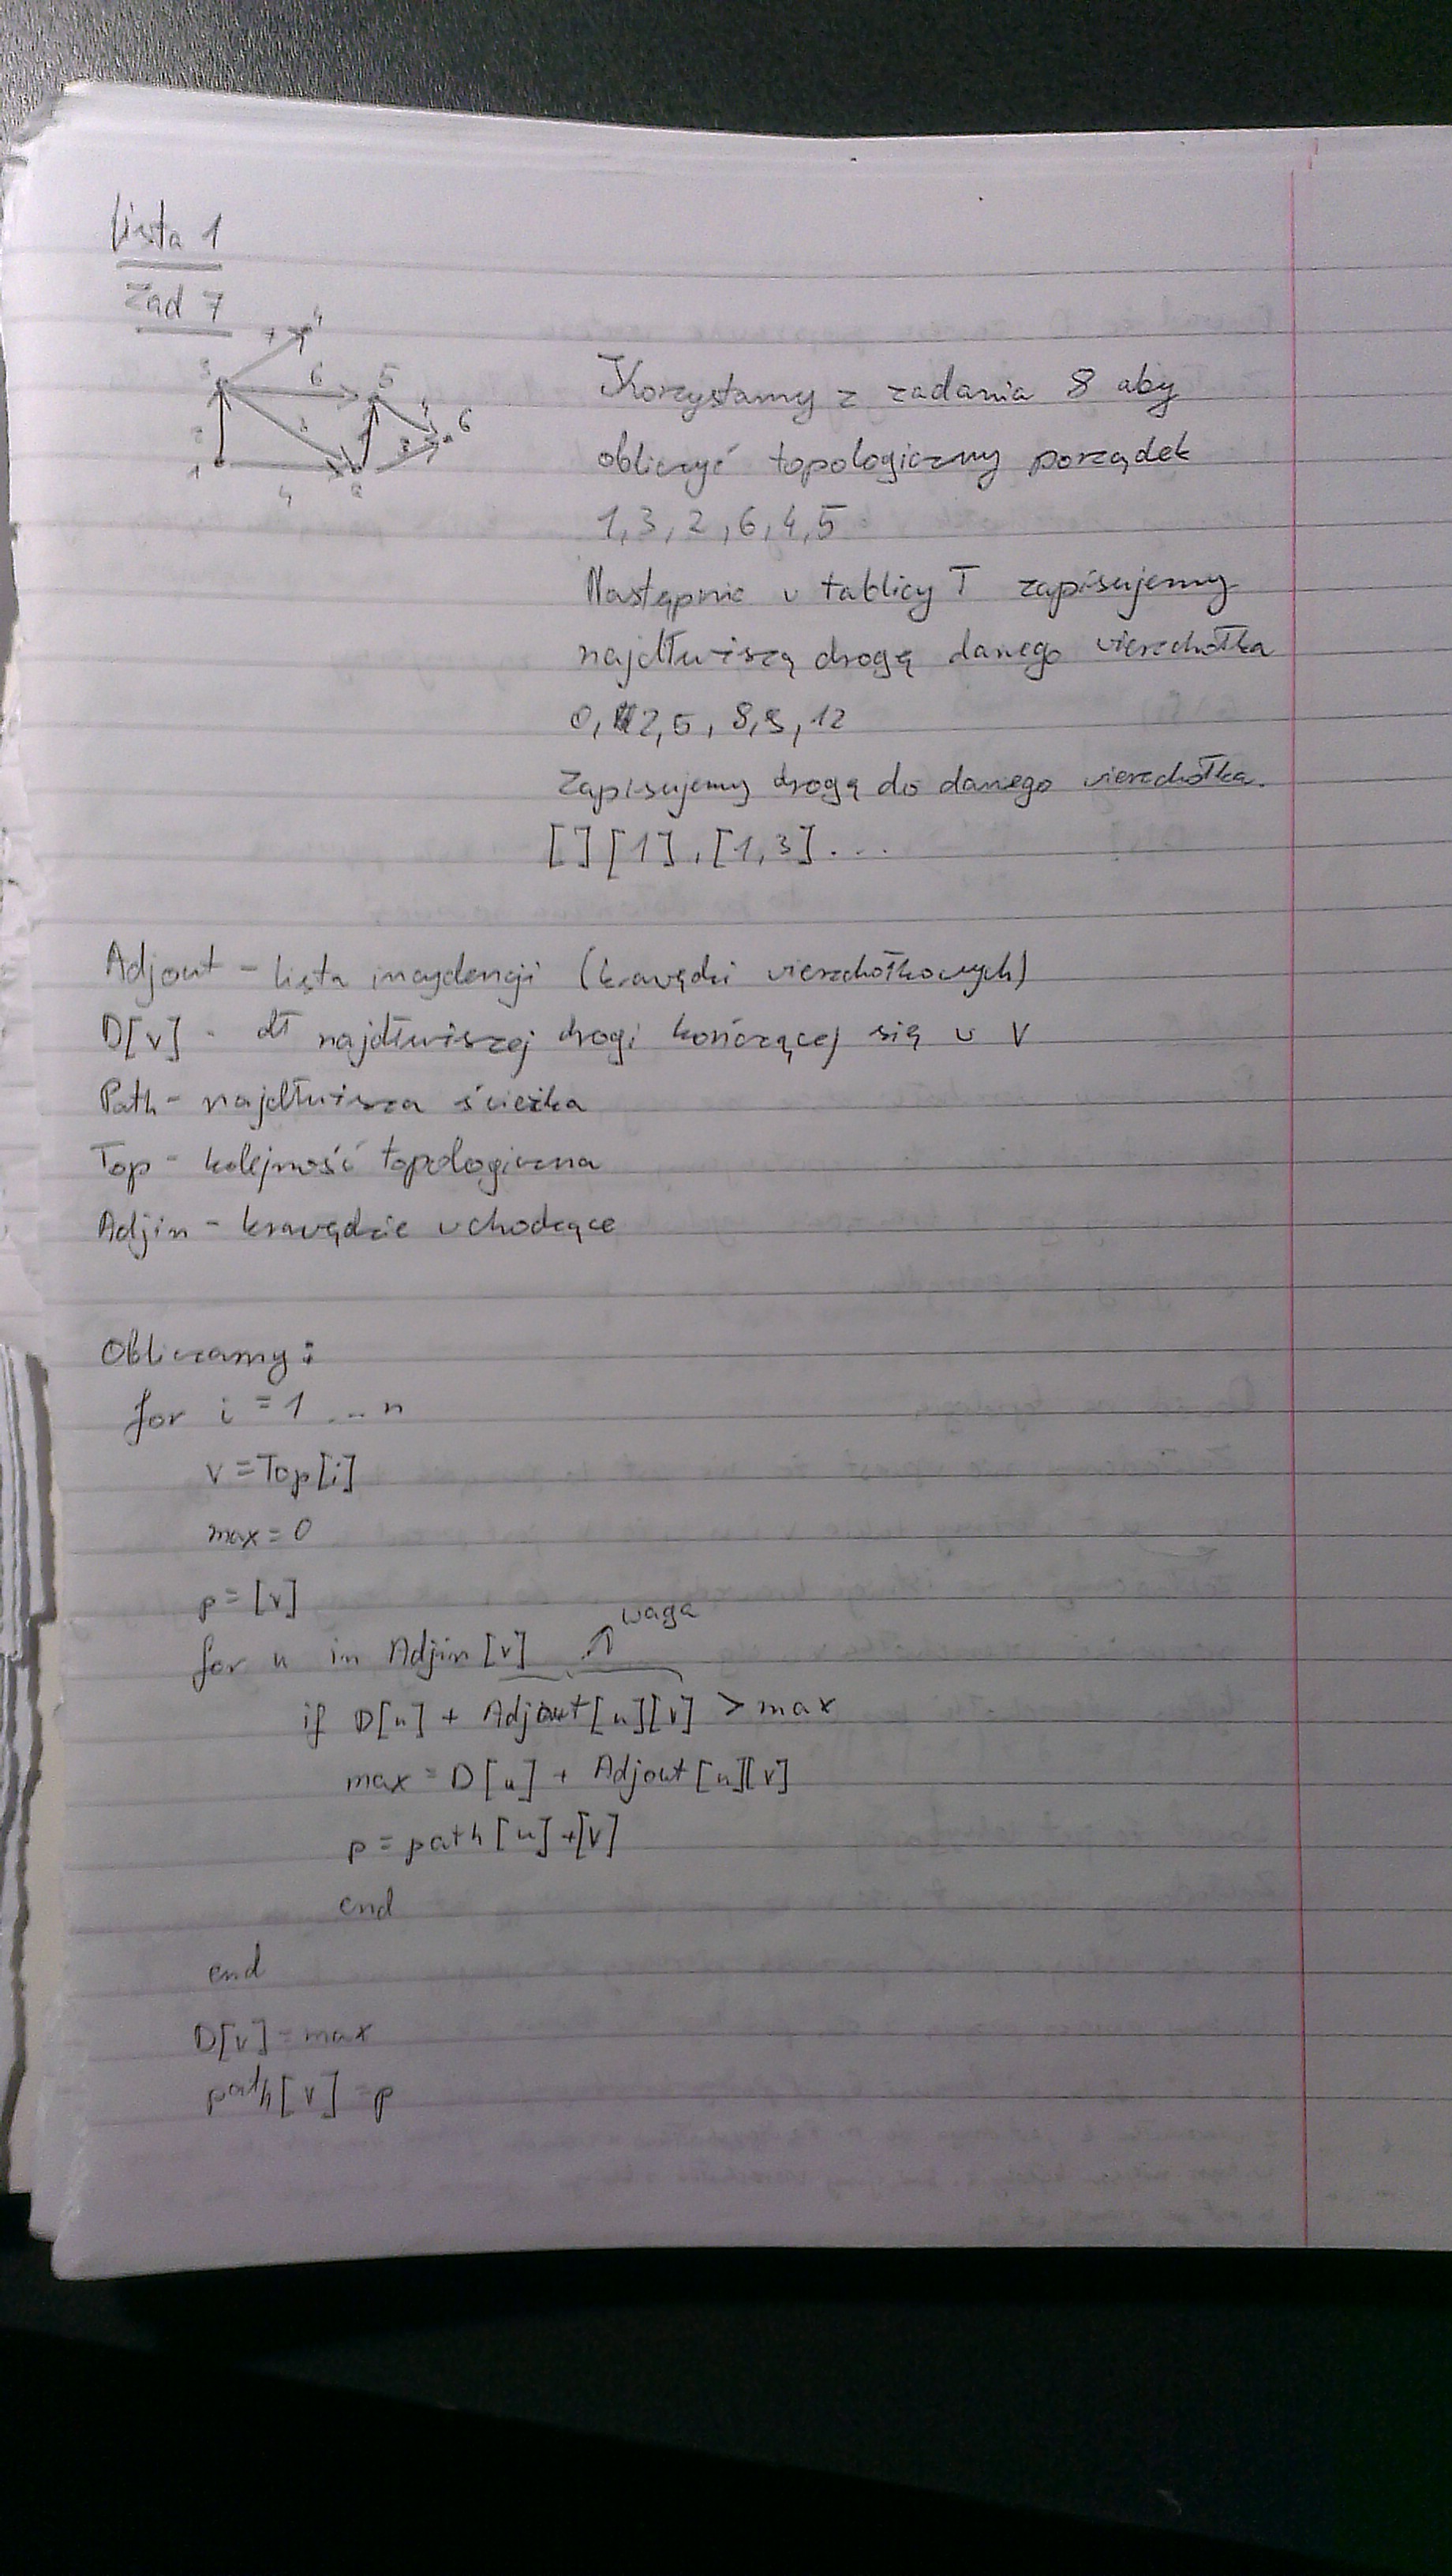 Lista 1
Zad 7
4
3 6 5
4 6
2 3
1
4 2
Korzystamy z zadania 8 aby
obliczyć topologiczny porządek
1, 3, 2, 6, 4, 5
Następnie w tablicy T zapisujemy
najdłuższą drogę danego wierzchołka
0, 2, 5, 8, 9, 12
Zapisujemy drogę do danego wierzchołka.
[] [1], [1,3]...
Adjout - lista incydencji (krawędzi wierzchołkowych)
D[v] - dł najdłuższej drogi kończącej się w V
Path - najdłuższa ścieżka
Top - kolejność topologiczna
Adjin - krawędzie wchodzące
Obliczamy:
for i = 1 ... n
v = Top[i]
max = 0
p = [v]
waga
for u in Adjin [v]
if D[u] + Adjout[u][v] > max
max = D[u] + Adjout[u][v]
p = path[u] + [v]
end
end
D[v] = max
path[v] = p